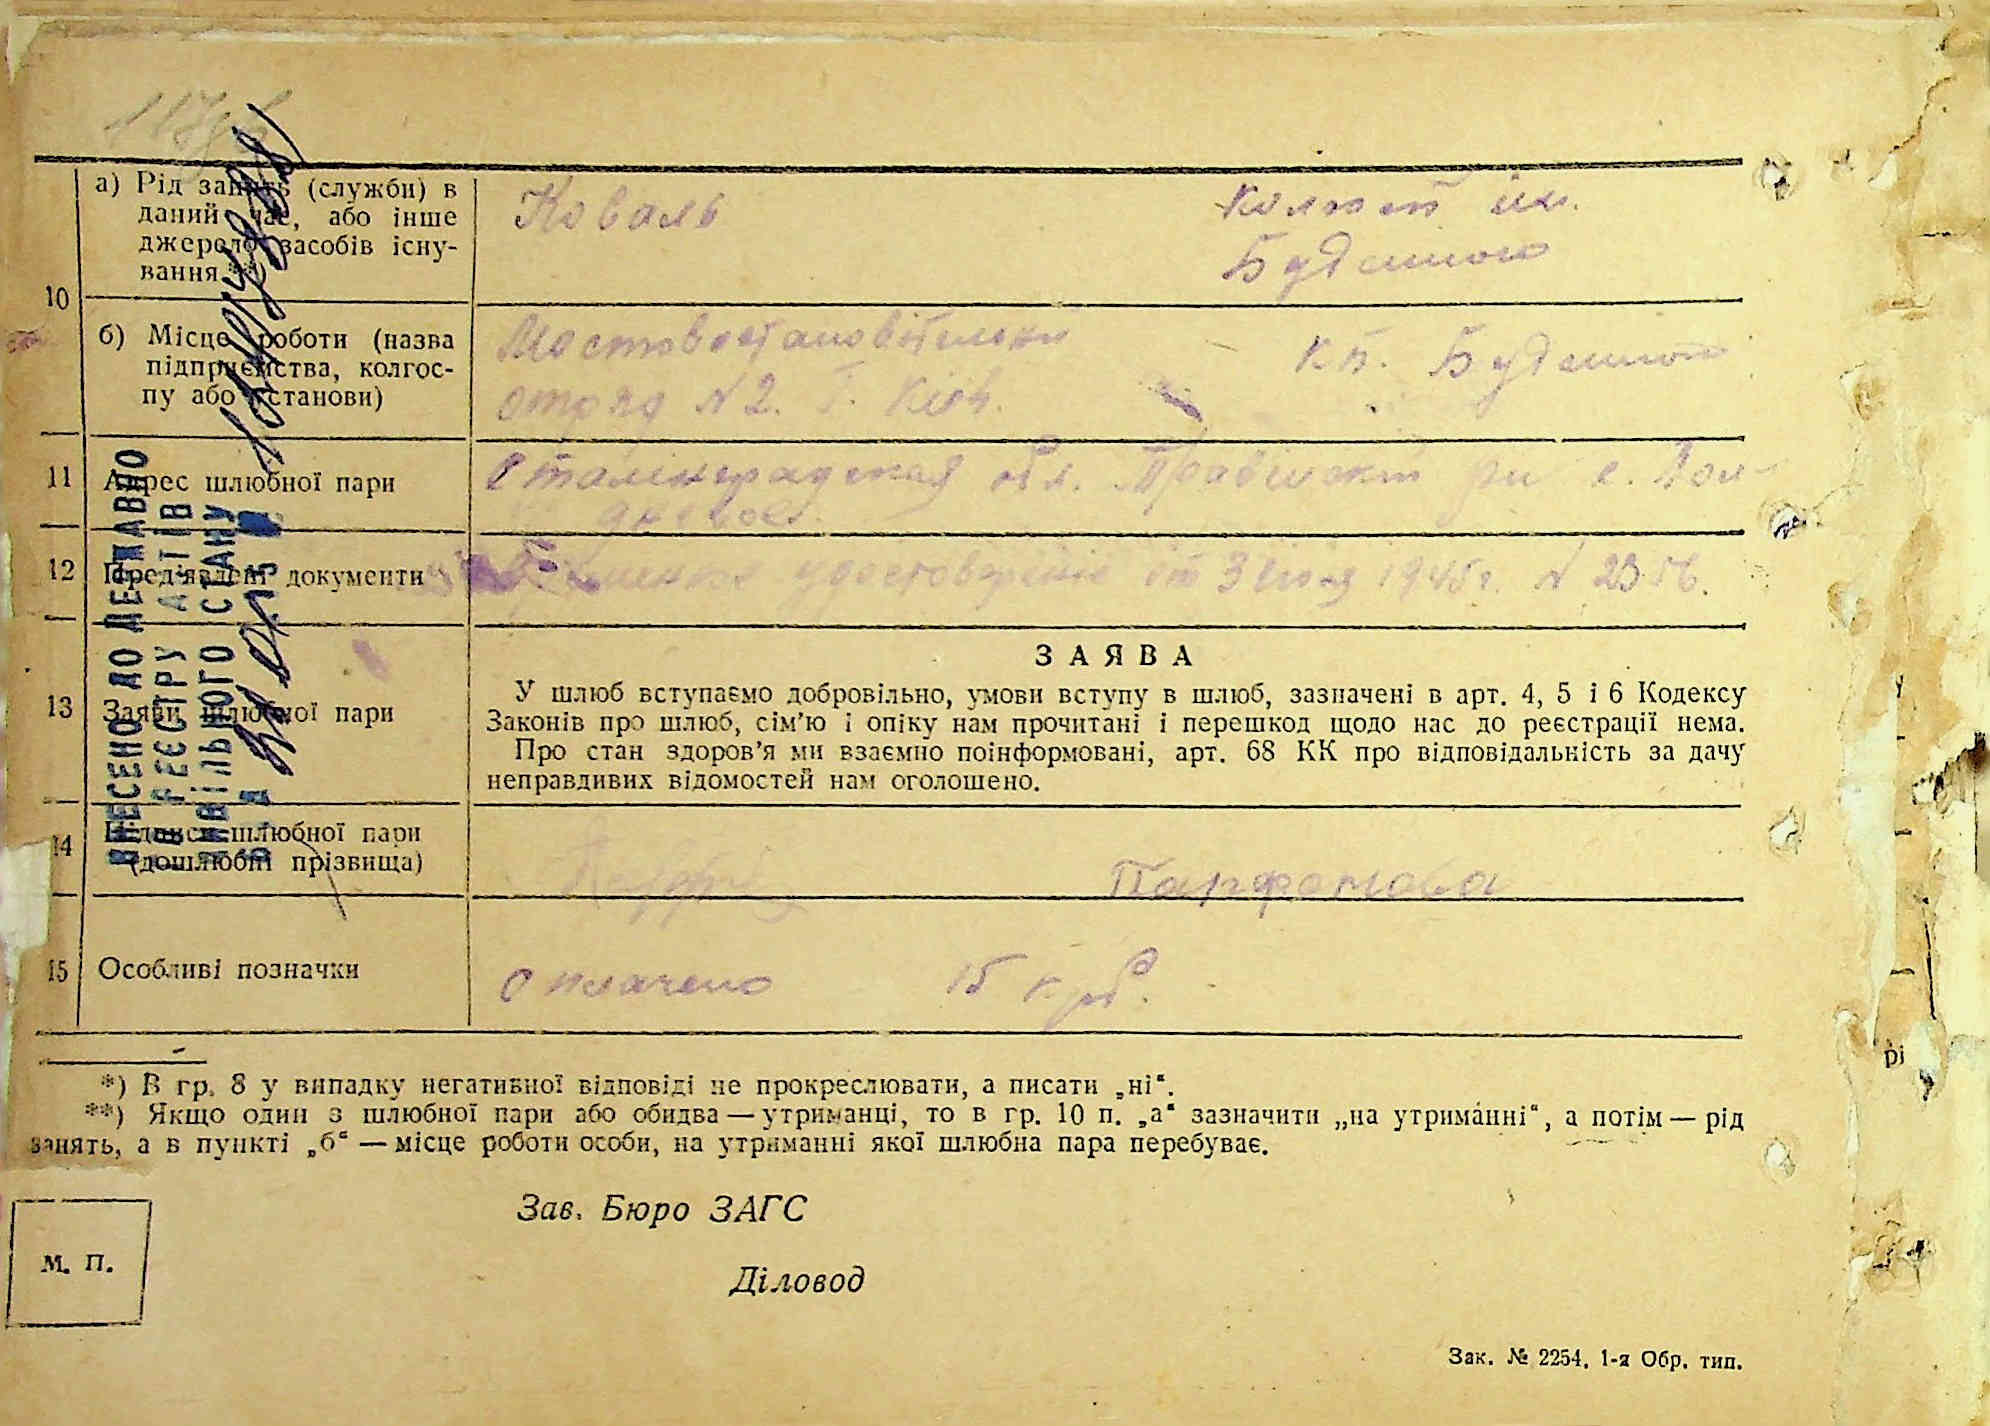 а) Рід занять (служби) в
даний час, або інше
джерело засобів існу-
вання **)
Коваль
Колгосп ім.
Будённого
10
б) Місце роботи (назва
підприємства, колгос-
пу або установи)
Мостовостановітельни
отряд № 2. г. Київ.
Будённого
11 Адрес шлюбної пари
Сталінградская обл.
12 Пред'явлені документи
удостоверение от 3 1945 г. № 2356.
13 Заяви шлюбної пари
ЗАЯВА
У шлюб вступаємо добровільно, умови вступу в шлюб, зазначені в арт. 4, 5 і 6 Кодексу
Законів про шлюб, сім'ю і опіку нам прочитані і перешкод щодо нас до реєстрації нема.
Про стан здоров'я ми взаємно поінформовані, арт. 68 КК про відповідальність за дачу
неправдивих відомостей нам оголошено.
14 Підписи шлюбної пари
(дошлюбні прізвища)
Парфенова
15 Особливі позначки
Оплачено 15 крб.
ВНЕСЕНО ДО ДЕРЖАВНО
РЕЄСТРУ АКТІВ
ЦИВІЛЬНОГО СТАНУ
*) В гр. 8 у випадку негативної відповіді не прокреслювати, а писати „ні“.
**) Якщо один з шлюбної пари або обидва — утриманці, то в гр. 10 п. „а“ зазначити „на утриманні“, а потім — рід
занять, а в пункті „б“ — місце роботи особи, на утриманні якої шлюбна пара перебуває.
Зав. Бюро ЗАГС
М. П.
Діловод
Зак. № 2254. 1-я Обр. тип.